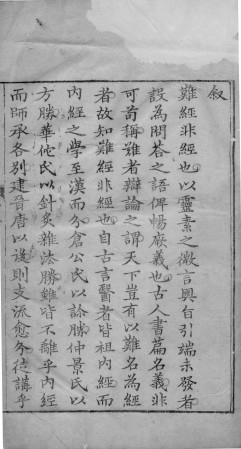 叙
難經非經也以靈素之微言奧旨引端未發者
設為問答之語俾暢厥義也古人書篇名義非
可苟稱難者辯論之謂天下豈有以難名為經
者故知難經非經也自古言醫者皆祖內經而
內經之學至漢而分倉公氏以診勝仲景氏以
方勝華佗氏以針灸雜法勝雖皆不離乎內經
而師承各別逮晉唐以後則支流愈分徒講乎